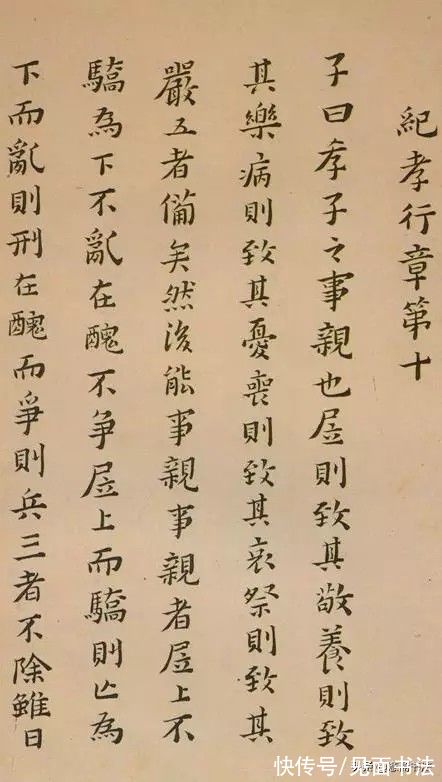 紀孝行章第十
子曰孝子之事親也居則致其敬養則致
其樂病則致其憂喪則致其哀祭則致其
嚴五者備矣然後能事親事親者居上不
驕為下不亂在醜不爭居上而驕則亡為
下而亂則刑在醜而爭則兵三者不除雖日
快传号/见面书法